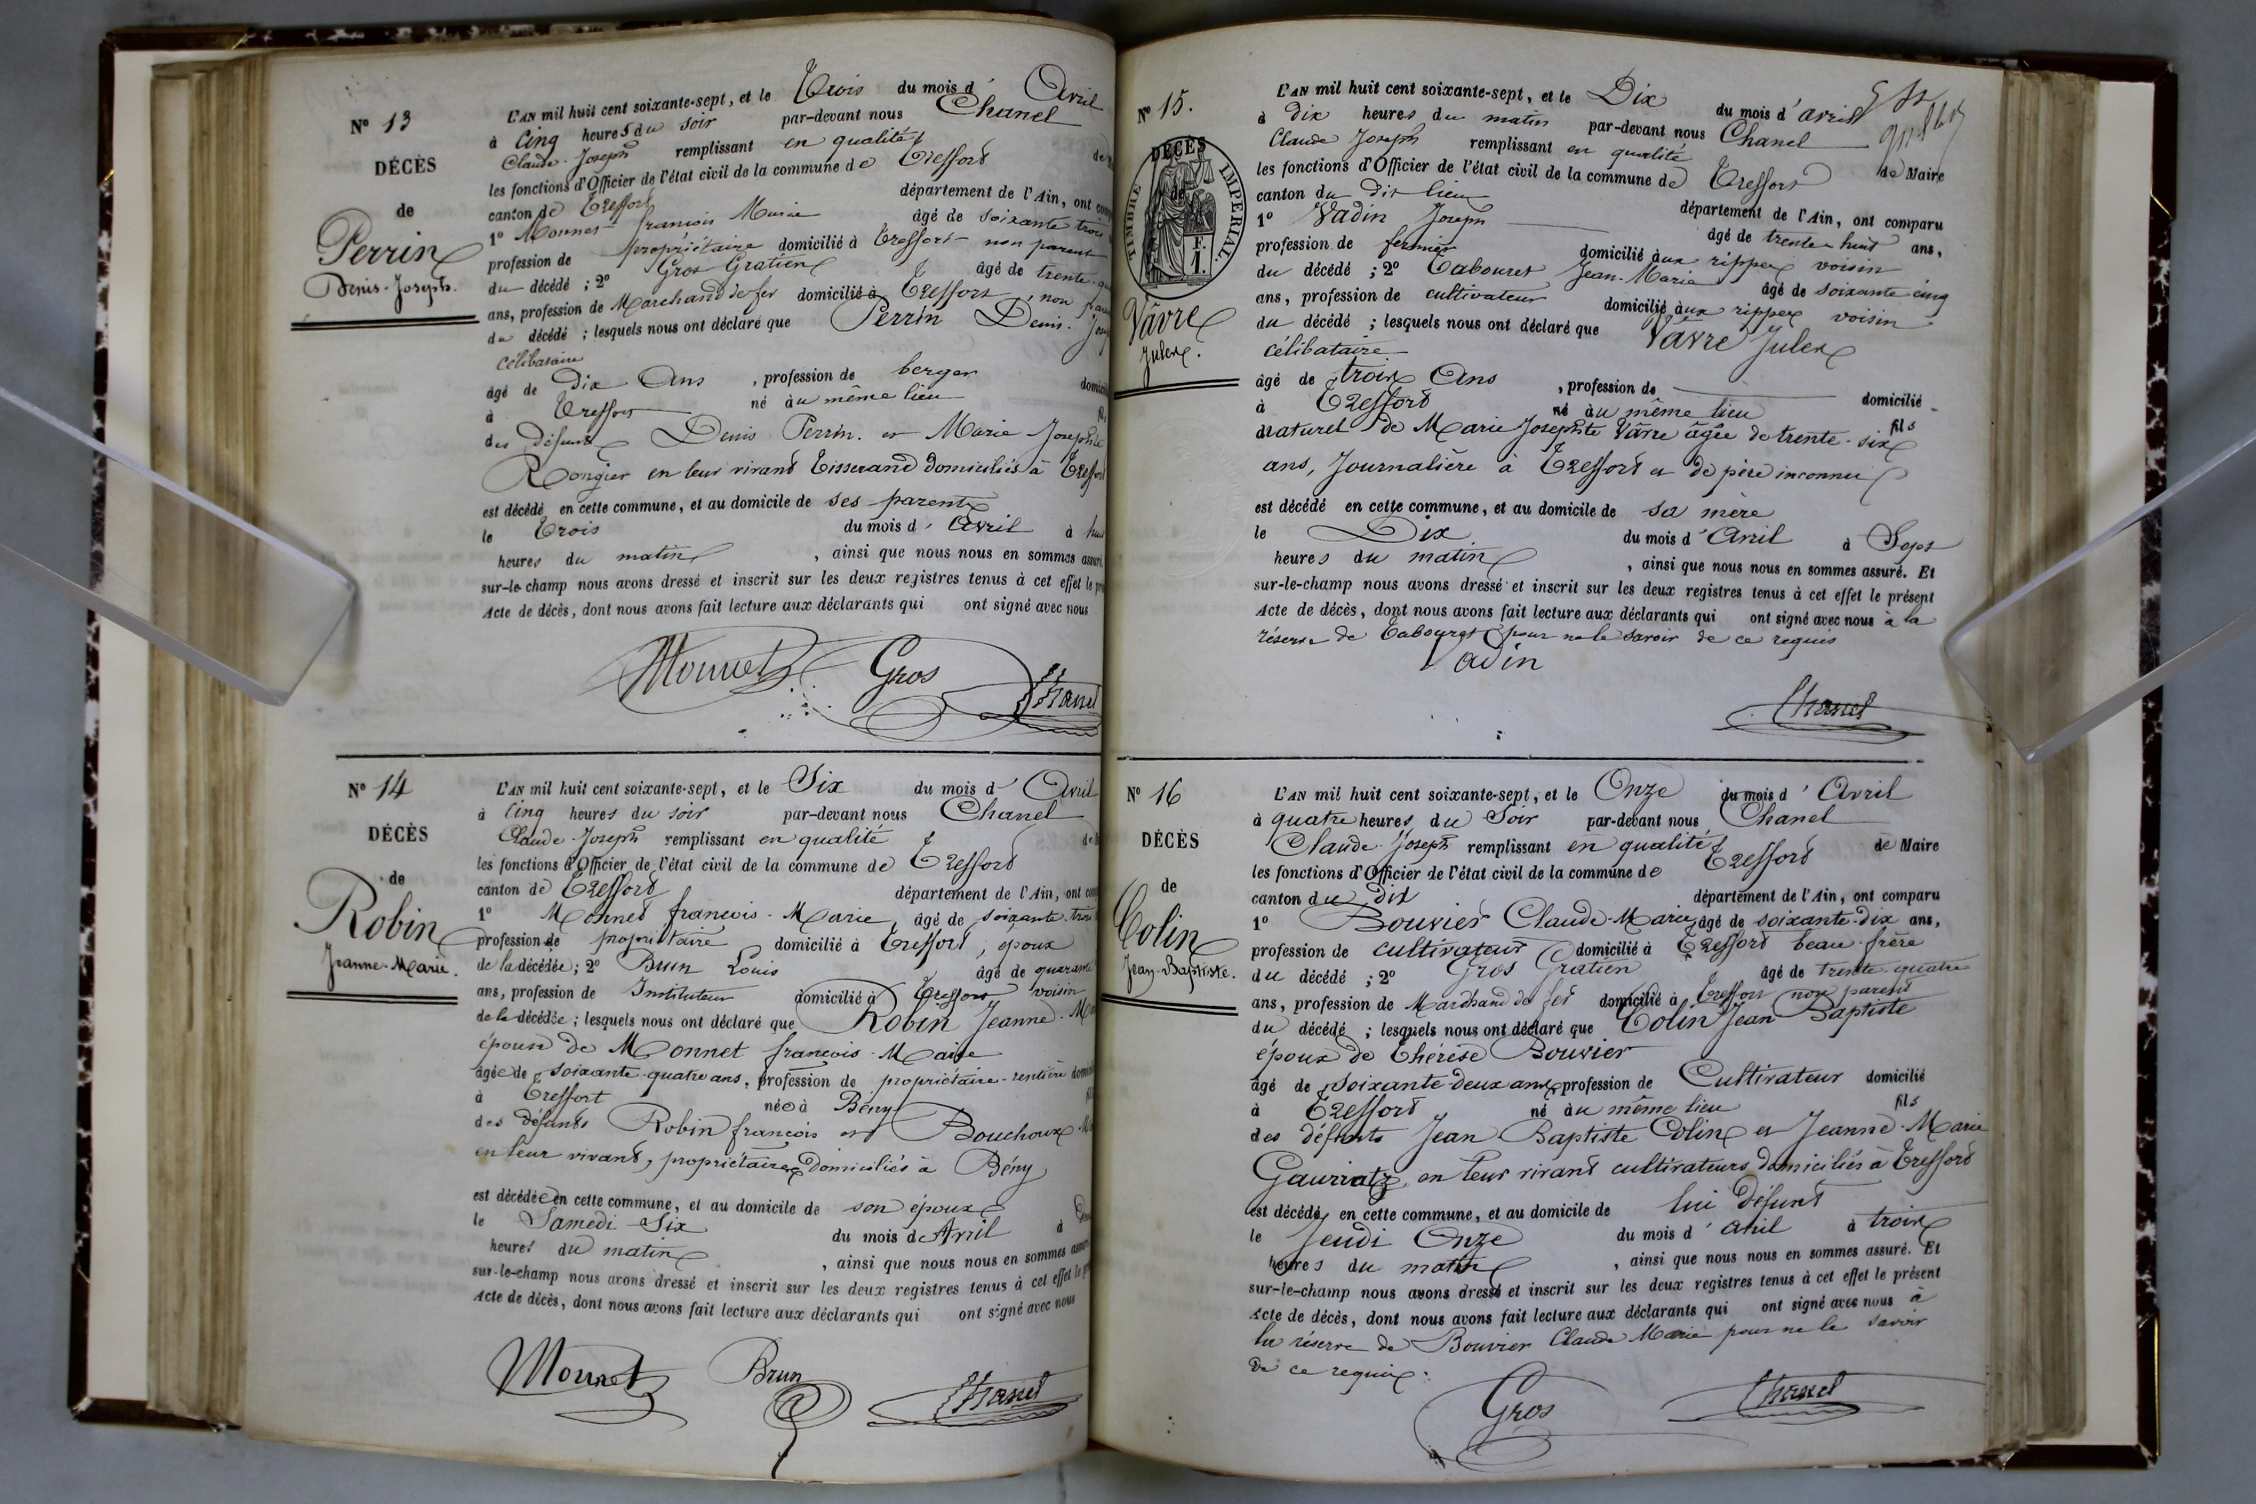 Nº 13
DÉCÈS
de
Perrin
Denis-Joseph.
L'AN mil huit cent soixante-sept, et le Trois du mois d' Avril
à Cinq heures du soir par-devant nous Chanel
Claude-Joseph remplissant en qualité
les fonctions d'Officier de l'état civil de la commune de Treffort
canton de Treffort département de l'Ain, ont
1º Monnet francois Marie âgé de soixante trois
profession de propriétaire domicilié à Treffort non parent
du décédé ; 2º Gros Gratien âgé de trente
ans, profession de Marchand de fer domicilié à Treffort, non
du décédé ; lesquels nous ont déclaré que Perrin Denis
célibataire
âgé de dix Ans, profession de berger
à Treffort né au même lieu
des défunts Denis Perrin et Marie Josephte
Rongier en leur vivant Tisserand domiciliés à Treffort
est décédé en cette commune, et au domicile de ses parents
le Trois du mois d' Avril à
heures du matin, ainsi que nous nous en sommes
sur-le-champ nous avons dressé et inscrit sur les deux registres tenus à cet effet le
Acte de décès, dont nous avons fait lecture aux déclarants qui ont signé avec nous
Monnet Gros Chanel
Nº 14
DÉCÈS
de
Robin
Jeanne-Marie.
L'AN mil huit cent soixante-sept, et le Six du mois d' Avril
à Cinq heures du soir par-devant nous Chanel
Claude-Joseph remplissant en qualité
les fonctions d'Officier de l'état civil de la commune de Treffort
canton de Treffort département de l'Ain, ont
1º Monnet francois-Marie, âgé de soixante-trois
profession de propriétaire domicilié à Treffort, époux
de la décédée ; 2º Brun Louis âgé de quarante
ans, profession de Instituteur domicilié à Treffort voisin
de la décédée ; lesquels nous ont déclaré que Robin Jeanne
épouse de Monnet francois-Marie
âgée de soixante-quatre ans, profession de propriétaire-rentière
à Treffort née à Bény
des défunts Robin francois et Bouchoux
en leur vivant, propriétaires domiciliés à Bény
est décédée en cette commune, et au domicile de son époux
le Samedi Six du mois de Avril à
heures du matin, ainsi que nous nous en sommes
sur-le-champ nous avons dressé et inscrit sur les deux registres tenus à cet effet le
Acte de décès, dont nous avons fait lecture aux déclarants qui ont signé avec nous
Monnet Brun Chanel
Nº 15.
DÉCÈS
de
TIMBRE IMPERIAL.
F.
1.
Vâvre
Jules.
L'AN mil huit cent soixante-sept, et le Dix du mois d' avril
à dix heures du matin par-devant nous Chanel
Claude Joseph remplissant en qualité de Maire
les fonctions d'Officier de l'état civil de la commune de Treffort
canton du dit lieu département de l'Ain, ont comparu
1º Vadin Joseph âgé de trente huit ans,
profession de fermier domicilié aux rippes voisin
du décédé ; 2º Cabouret Jean-Marie âgé de soixante cinq
ans, profession de cultivateur domicilié aux rippes voisin
du décédé ; lesquels nous ont déclaré que Vâvre Jules
célibataire
âgé de trois Ans, profession de domicilié
à Treffort né au même lieu fils
naturel de Marie Josephte Vâvre âgée de trente-six
ans, Journalière à Treffort et de père inconnu
est décédé en cette commune, et au domicile de sa mère
le Dix du mois d' Avril à Sept
heures du matin, ainsi que nous nous en sommes assuré. Et
sur-le-champ nous avons dressé et inscrit sur les deux registres tenus à cet effet le présent
Acte de décès, dont nous avons fait lecture aux déclarants qui ont signé avec nous à la
réserve de Cabouret pour ne le savoir de ce requis
Vadin
Chanel
Nº 16
DÉCÈS
de
Colin
Jean-Baptiste.
L'AN mil huit cent soixante-sept, et le Onze du mois d' Avril
à quatre heures du Soir par-devant nous Chanel
Claude-Joseph remplissant en qualité de Maire
les fonctions d'Officier de l'état civil de la commune de Treffort
canton du dit département de l'Ain, ont comparu
1º Bouvier Claude-Marie, âgé de soixante-dix ans,
profession de cultivateur domicilié à Treffort beau-frère
du décédé ; 2º Gros Gratien âgé de trente-quatre
ans, profession de Marchand de fer domicilié à Treffort non parent
du décédé ; lesquels nous ont déclaré que Colin Jean Baptiste
époux de Thérèse Bouvier
âgé de soixante-deux ans profession de Cultivateur domicilié
à Treffort né au même lieu fils
des défunts Jean Baptiste Colin et Jeanne-Marie
Gauriatz en leur vivant cultivateurs domiciliés à Treffort
est décédé en cette commune, et au domicile de lui défunt
le Jeudi Onze du mois d' avril à trois
heures du matin, ainsi que nous nous en sommes assuré. Et
sur-le-champ nous avons dressé et inscrit sur les deux registres tenus à cet effet le présent
Acte de décès, dont nous avons fait lecture aux déclarants qui ont signé avec nous à
la réserve de Bouvier Claude Marie pour ne le savoir
de ce requis.
Gros Chanel